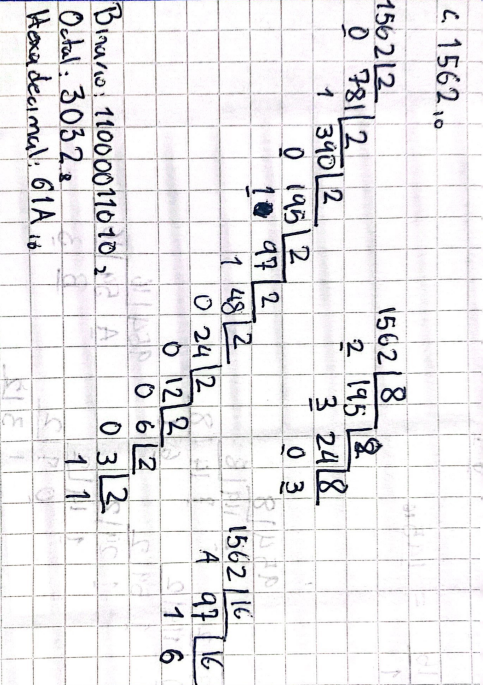 c. 1562₁₀
1562 | 2
0 781 | 2
1 390 | 2
0 195 | 2
1 97 | 2
1 48 | 2
0 24 | 2
0 12 | 2
0 6 | 2
0 3 | 2
1 1
1562 | 8
2 195 | 8
3 24 | 8
0 3
1562 | 16
A 97 | 16
1 6
Binario: 11000011010₂
Octal: 3032₈
Hexadecimal: 61A₁₆